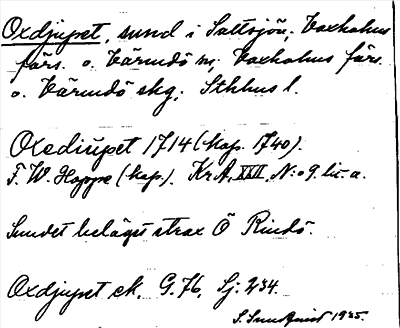 Oxdjupet, sund i Saltsjön; Vaxholms
förs. o. Värmdö sn; Vaxholms förs.
o. Värmdö skg; Sthlms l.
Oxediupet 1714 (kop. 1740).
F. W. Hoppe (kop.). KrA, XXII, N:o 9 lit. a.
Sundet beläget strax Ö Rindö.
Oxdjupet ek. G.76, Sj: 234.
S. Sundquist 1935.